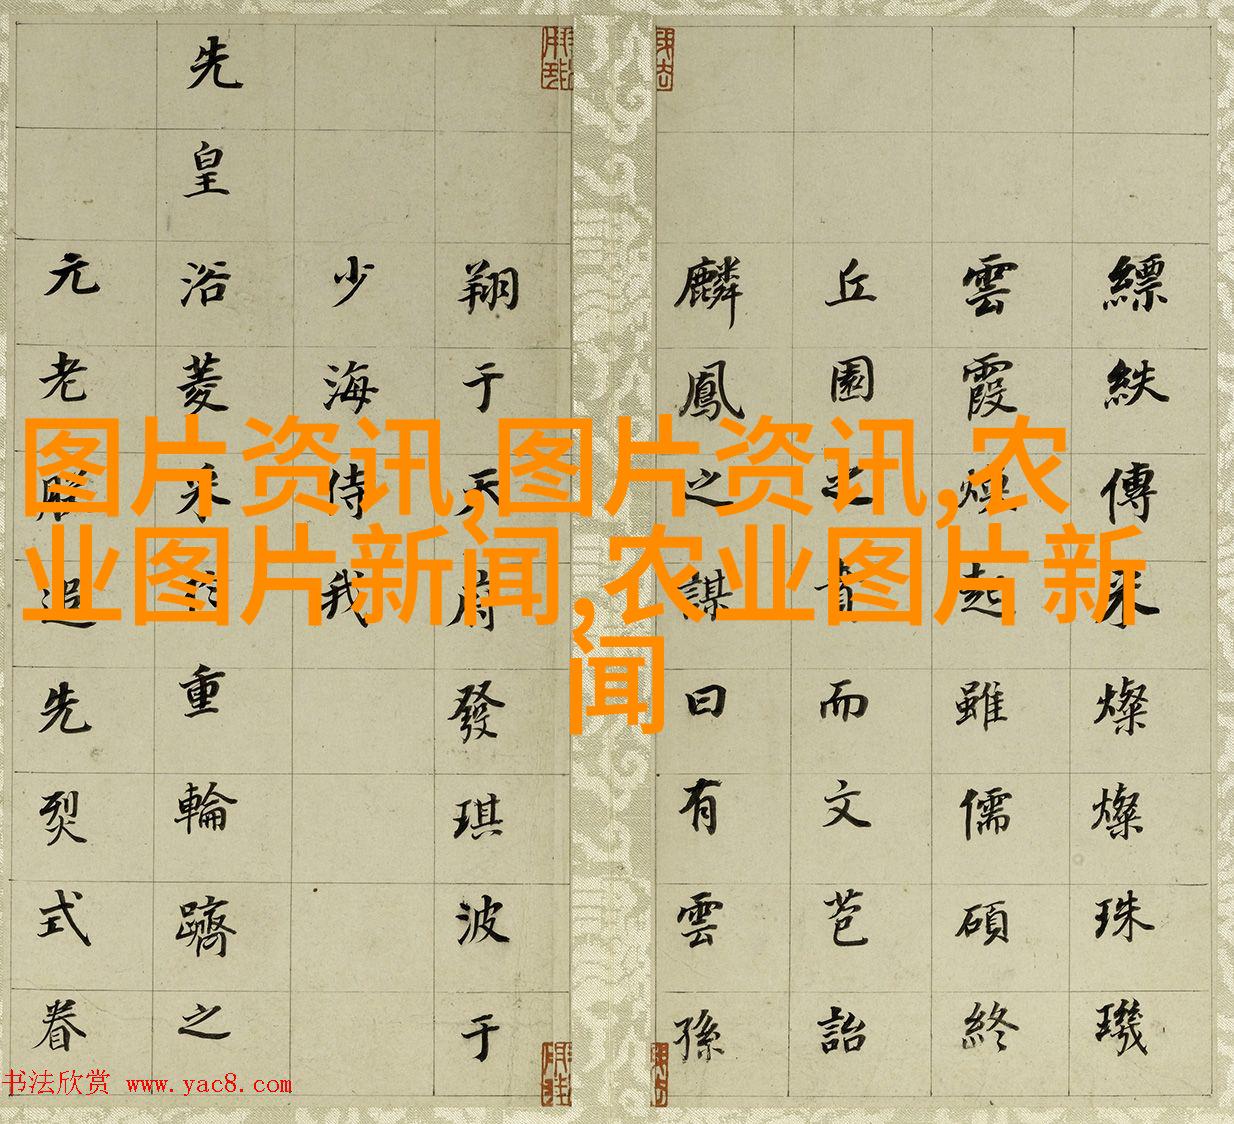 縹紩傳采燦燦珠璣
雲霞起雖儒碩終
丘園之賁而文苞詒
麟鳳之謀曰有雲孫
翔于天府發琪波于
少海侍我
先皇浴菱采重輪躋之
元老追先烈式眷
图片资讯,图片资讯,农
业图片新闻,农业图片新
闻
书法欣赏 www.yac8.com